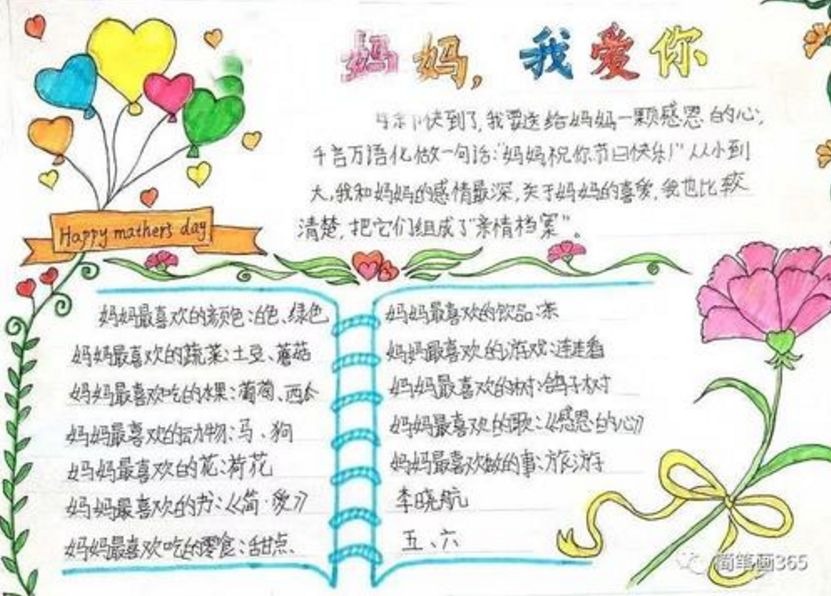 妈妈,我爱你
母亲节快到了,我要送给妈妈一颗感恩的心,
千言万语化做一句话:"妈妈祝你节日快乐!"从小到
大,我和妈妈的感情最深,关于妈妈的喜爱,我也比较
清楚,把它们组成了"亲情档案"。
Happy mather's day
妈妈最喜欢的颜色:白色、绿色
妈妈最喜欢的蔬菜:土豆、蘑菇
妈妈最喜欢吃的水果:葡萄、西瓜
妈妈最喜欢的动物:马、狗
妈妈最喜欢的花:荷花
妈妈最喜欢的书:《简·爱》
妈妈最喜欢吃的零食:甜点
妈妈最喜欢的饮品:茶
妈妈最喜欢的游戏:连连看
妈妈最喜欢的树:鸽子树
妈妈最喜欢的歌:《感恩的心》
妈妈最喜欢做的事:旅游
李晓航
五、六
简笔画365